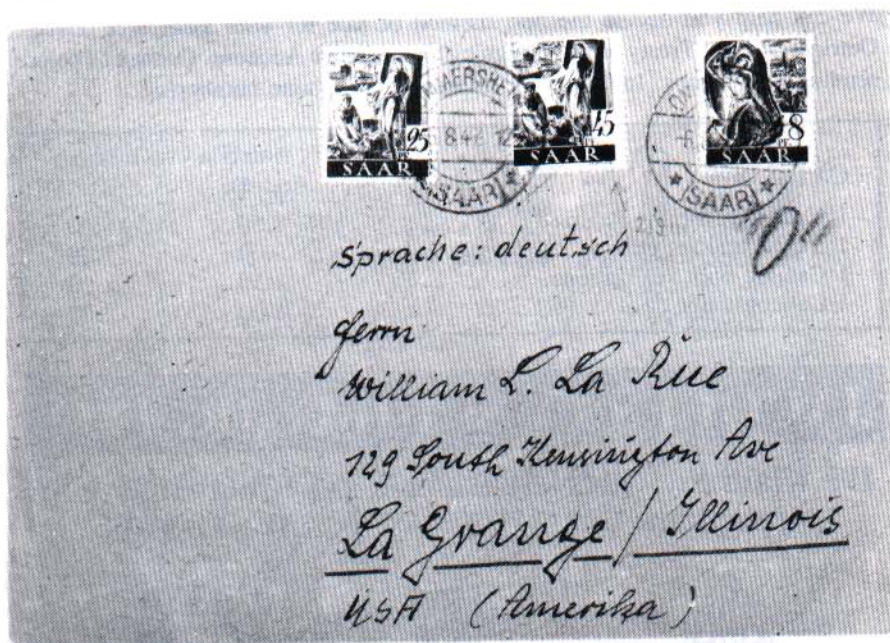 25 SAAR
45 SAAR
8 SAAR
MMERSHE
8.47 12
(SAAR)
(SAAR)
"0"
Sprache: deutsch
Herrn
William L. La Rue
129 South Kensington Ave
La Grange / Illinois
USA (Amerika)